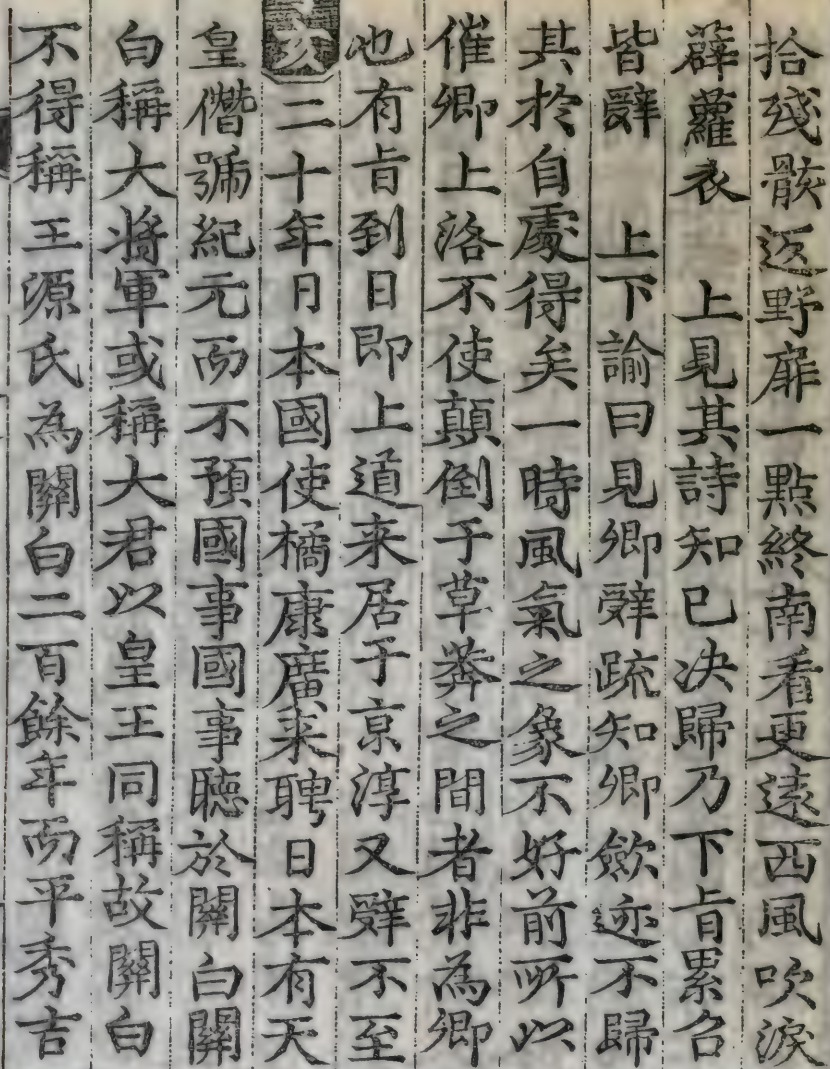 拾殘骸返野扉一點終南看更遠西風吹淚
薜蘿衣　上見其詩知已决歸乃下旨累召
皆辭　上下諭曰見卿辭疏知卿歛迹不歸
其於自處得矣一時風氣之象不好前所以
催卿上洛不使顛倒于草莽之間者非為卿
也有旨到日即上道来居于京淳又辭不至
亥二十年日本國使橘康廣来聘日本有天
皇僭號紀元而不預國事國事聽於關白關
白稱大將軍或稱大君以皇王同稱故關白
不得稱王源氏為關白二百餘年而平秀吉